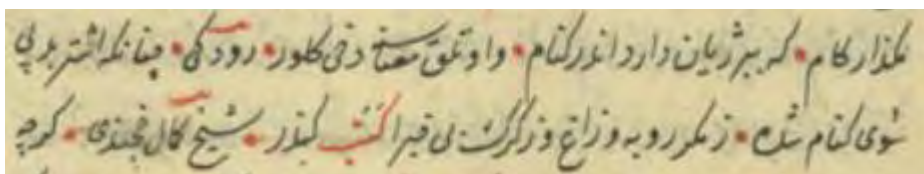 مگذار کام • که ببر ژیان دارد اندر کنام • و اوتلق معناسنه دخی کلور • رودکی • چنانکه اشتر
سوی کنام شده • ز مکر روبه و زاغ و ز گرگ بی خبرا • شیخ کمال خجندی • گرچه